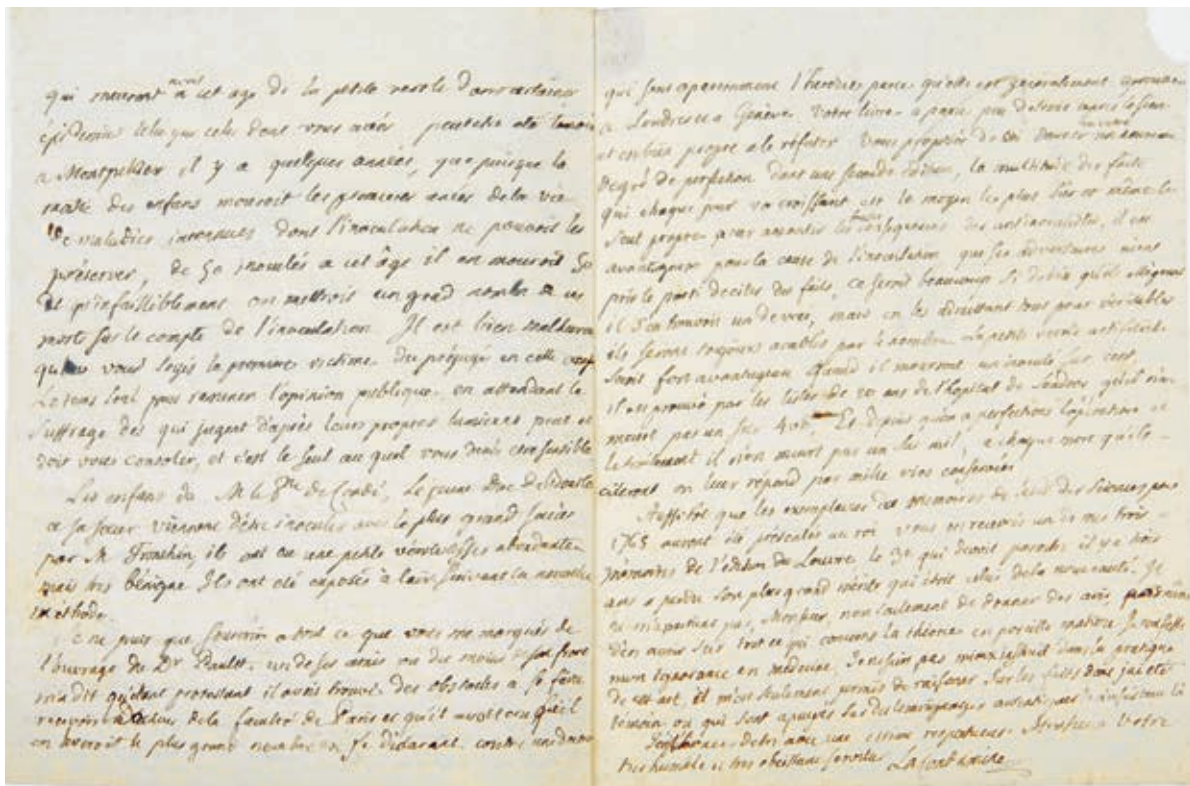 qui meurent à cet age de la petite verole dans certaines
epidemies telles que celle dont vous avés peutetre eté temoin
a Montpellier il y a quelques années, que puisque la
moitié des enfans mouroit les premieres années de la vie
de maladies inconnues dont l'inoculation ne pouvoit les
préserver, de 50 inoculés a cet âge il en mouroit
et qu'infailliblement on mettroit un grand nombre de ces
morts sur le compte de l'inoculation. Il est bien malheureux
que vous soyés la premiere victime du préjugé en cette
Le tems seul peut ramener l'opinion publique. en attendant le
suffrage des qui jugent d'après leurs propres lumieres peut et
doit vous consoler, et c'est le seul au quel vous deviés etre sensible
Les enfans de M. le de Condé, le jeune Duc de
et sa soeur viennent d'être inoculés avec le plus grand succès
par M. Tronchin, ils ont eu une petite verole assés abondante
mais tres bénigne. Ils ont eté exposés à l'air suivant la nouvelle
methode.
Je ne puis que souscrire a tout ce que vous me marqués de
l'ouvrage du Dr Paulet. un de ses amis ou du moins de son frere
m'a dit qu'etant protestant il avoit trouvé des obstacles a se faire
recevoir Docteur de la faculté de Paris et qu'il avoit cru qu'il
en auroit le plus grand nombre en se déclarant contre
qui sent aparemment l'heresie parce qu'elle est generalement
a Londres et a Genève. Votre lettre a paru peu de tems
et est bien propre a le réfuter. Vous proposés de lui donner un nouveau
degré de perfection dans une seconde édition, la multitude des faits
qui chaque jour va croissant est le moyen le plus sûr et même le
seul propre pour aneantir les consequences des antinoculistes, il est
avantageux pour la cause de l'inoculation que ses adversaires aient
pris le parti de citer des faits, ce seroit beaucoup si de dix qu'ils alléguent
il s'en trouvoit un de vrai, mais en les admettant tous pour véritables
ils seront toujours acablés par le nombre. La petite verole artificielle
seroit fort avantageuse quand il mourroit un inoculé sur cent,
il est prouvé par les listes de 20 ans de l'hopital de Londres qu'il n'en
meurt pas un sur 400. Et depuis qu'on a perfectionné l'opération et
le traitement il n'en meurt pas un sur mil, a chaque mort qu'ils
citeront on leur répond par mille vies conservées
Aussitôt que les exemplaires des memoires de l'acad. des Sciences pour
1765 auront été présentés au roi vous en recevrés un de mes trois
mémoires de l'édition du Louvre. le 3e qui devoit paroitre il y a trois
ans a perdu son plus grand mérite qui étoit celui de la nouveauté. Je
ne m'aviserai pas, Monsieur, non seulement de donner des avis, mais même
d'en avoir sur tout ce qui concerne la théorie en pareille matiere. Je confesse
mon ignorance en medecine. Je ne suis pas mieux instruit dans la pratique
de cet art, il m'est seulement permis de raisonner sur les faits dont j'ai eté
temoin ou qui sont apuyés sur des temoignages autentiques.
J'ai l'honneur d'etre avec une estime respectueuse Monsieur Votre
tres humble et tres obeissant serviteur La Condamine